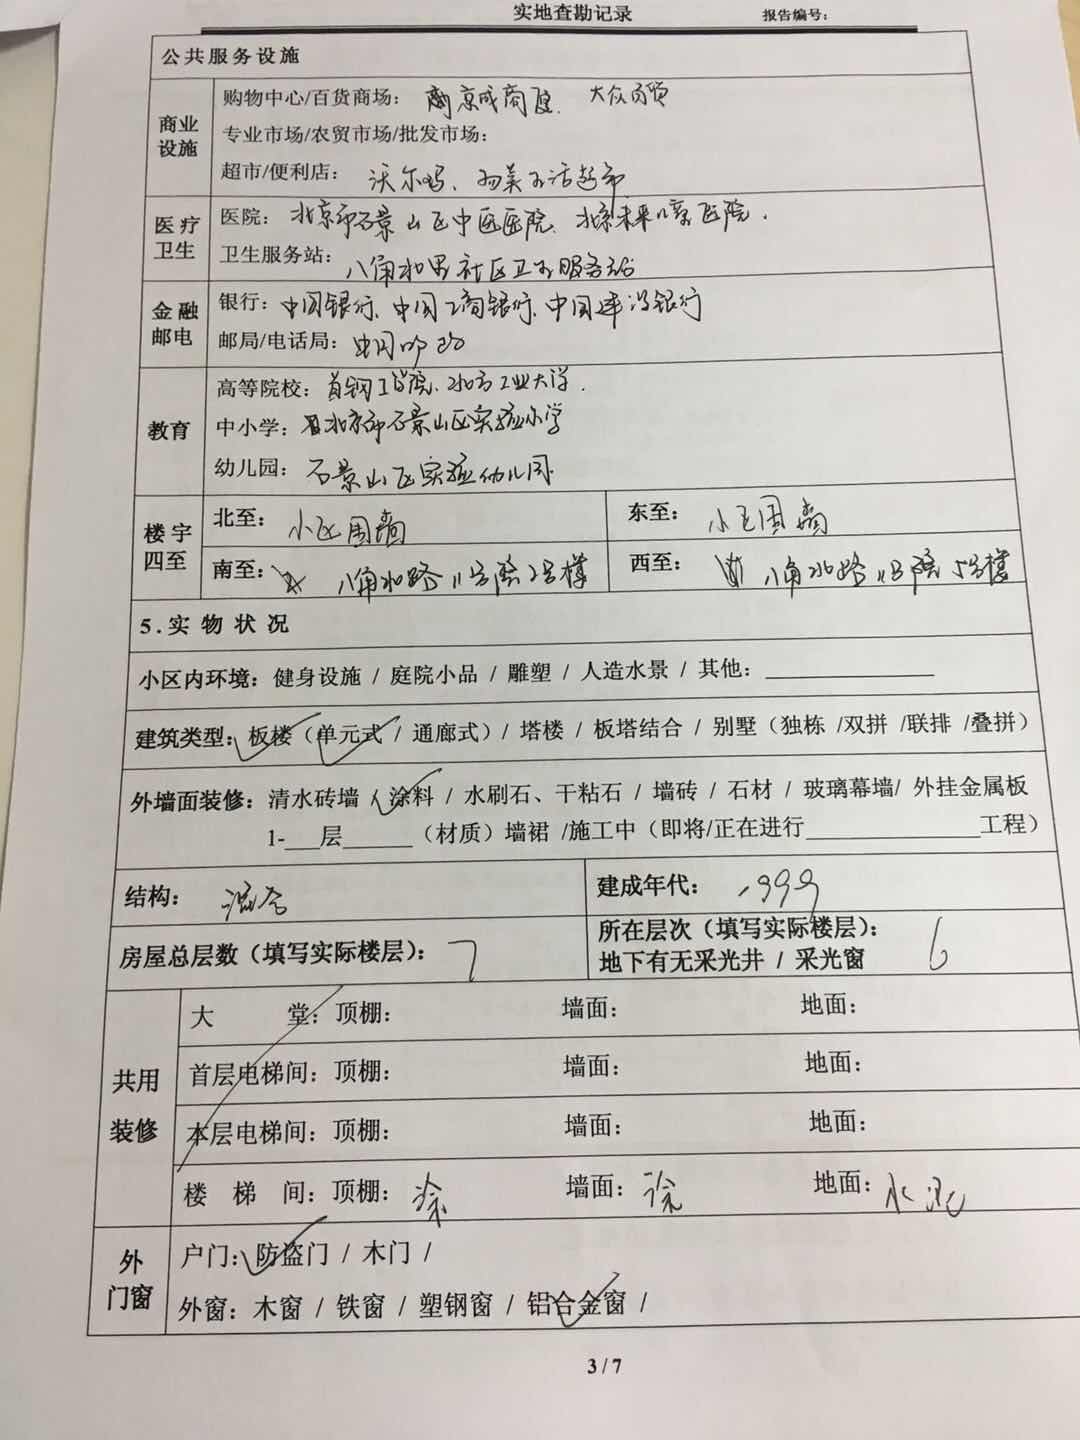 实地查勘记录 报告编号：
公共服务设施
商业设施
购物中心/百货商场： 京成商厦、大众商贸
专业市场/农贸市场/批发市场：
超市/便利店： 沃尔玛、物美生活超市
医疗卫生
医院： 北京市石景山区中医医院、北京未来嗅医院.
卫生服务站： 八角北里社区卫生服务站
金融邮电
银行： 中国银行、中国工商银行、中国建设银行
邮局/电话局： 中国邮政
教育
高等院校： 首钢工学院、北方工业大学.
中小学： 北京市石景山区实验小学
幼儿园： 石景山区实验幼儿园
楼宇四至
北至： 小区围墙 东至： 小区围墙
南至： 八角北路11号院2号楼 西至： 八角北路11号院5号楼
5.实物状况
小区内环境：健身设施 / 庭院小品 / 雕塑 / 人造水景 / 其他：
建筑类型：板楼（单元式 / 通廊式）/ 塔楼 / 板塔结合 / 别墅（独栋 /双拼 /联排 /叠拼）
外墙面装修：清水砖墙 / 涂料 / 水刷石、干粘石 / 墙砖 / 石材 / 玻璃幕墙/ 外挂金属板
1-___层______（材质）墙裙 /施工中（即将/正在进行_______________工程）
结构： 混合 建成年代： 1999
房屋总层数（填写实际楼层）： 7 所在层次（填写实际楼层）： 6
地下有无采光井 / 采光窗
共用装修
大 堂：顶棚： 墙面： 地面：
首层电梯间：顶棚： 墙面： 地面：
本层电梯间：顶棚： 墙面： 地面：
楼 梯 间：顶棚： 涂 墙面： 涂 地面： 水泥
外门窗
户门：防盗门 / 木门 /
外窗：木窗 / 铁窗 / 塑钢窗 / 铝合金窗 /
3 / 7